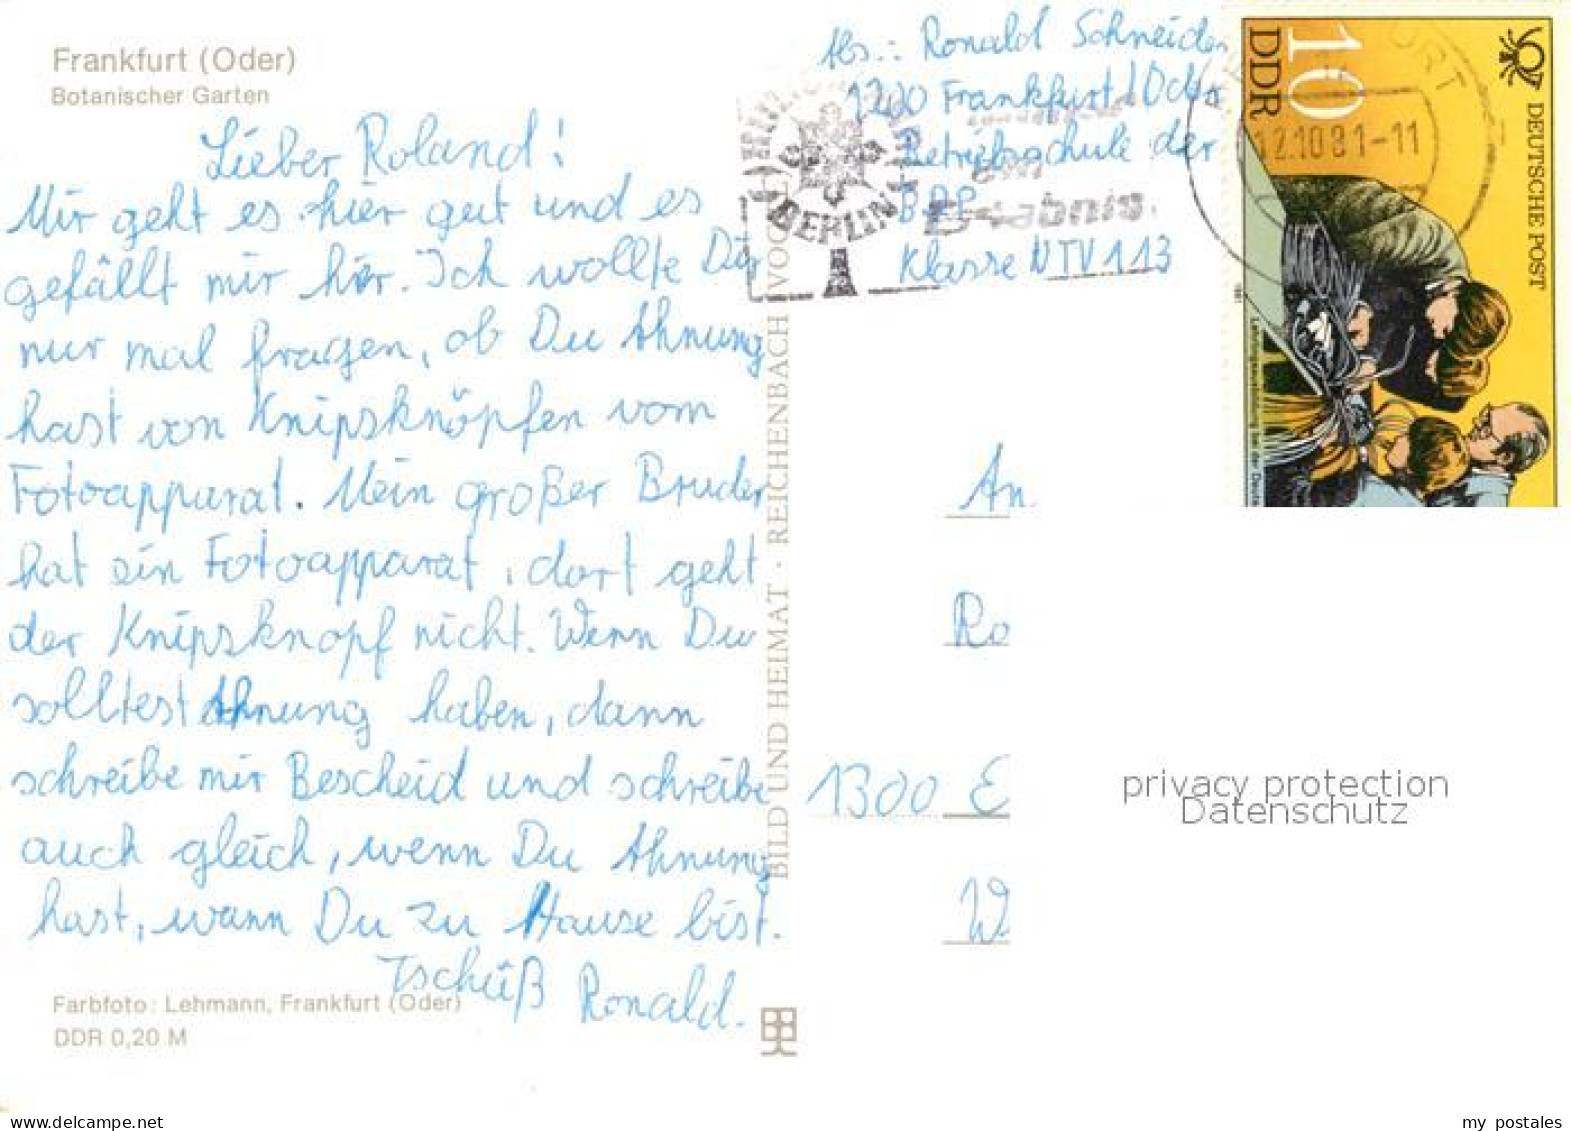 Frankfurt (Oder)
Botanischer Garten
Lieber Roland!
Mir geht es hier gut und es
gefällt mir hier. Ich wollte Dir
nur mal fragen, ob Du Ahnung
hast von Knipsknöpfen vom
Fotoapparat. Mein großer Bruder
hat ein Fotoapparat, dort geht
der Knipsknopf nicht. Wenn Du
solltest Ahnung haben, dann
schreibe mir Bescheid und schreibe
auch gleich, wenn Du Ahnung
hast, wann Du zu Hause bist.
Tschüß Ronald.
Farbfoto: Lehmann, Frankfurt (Oder)
DDR 0,20 M
BILD UND HEIMAT · REICHENBACH VOGTL
Abs.: Ronald Schneider
1200 Frankfurt/Oder
Betriebsschule der
BDP
Klasse NTV 113
BERLIN
Erlebnis.
12.10.81-11
10
DDR
DEUTSCHE POST
1981
An
Ro
1300 E
W
privacy protection
Datenschutz
my postales